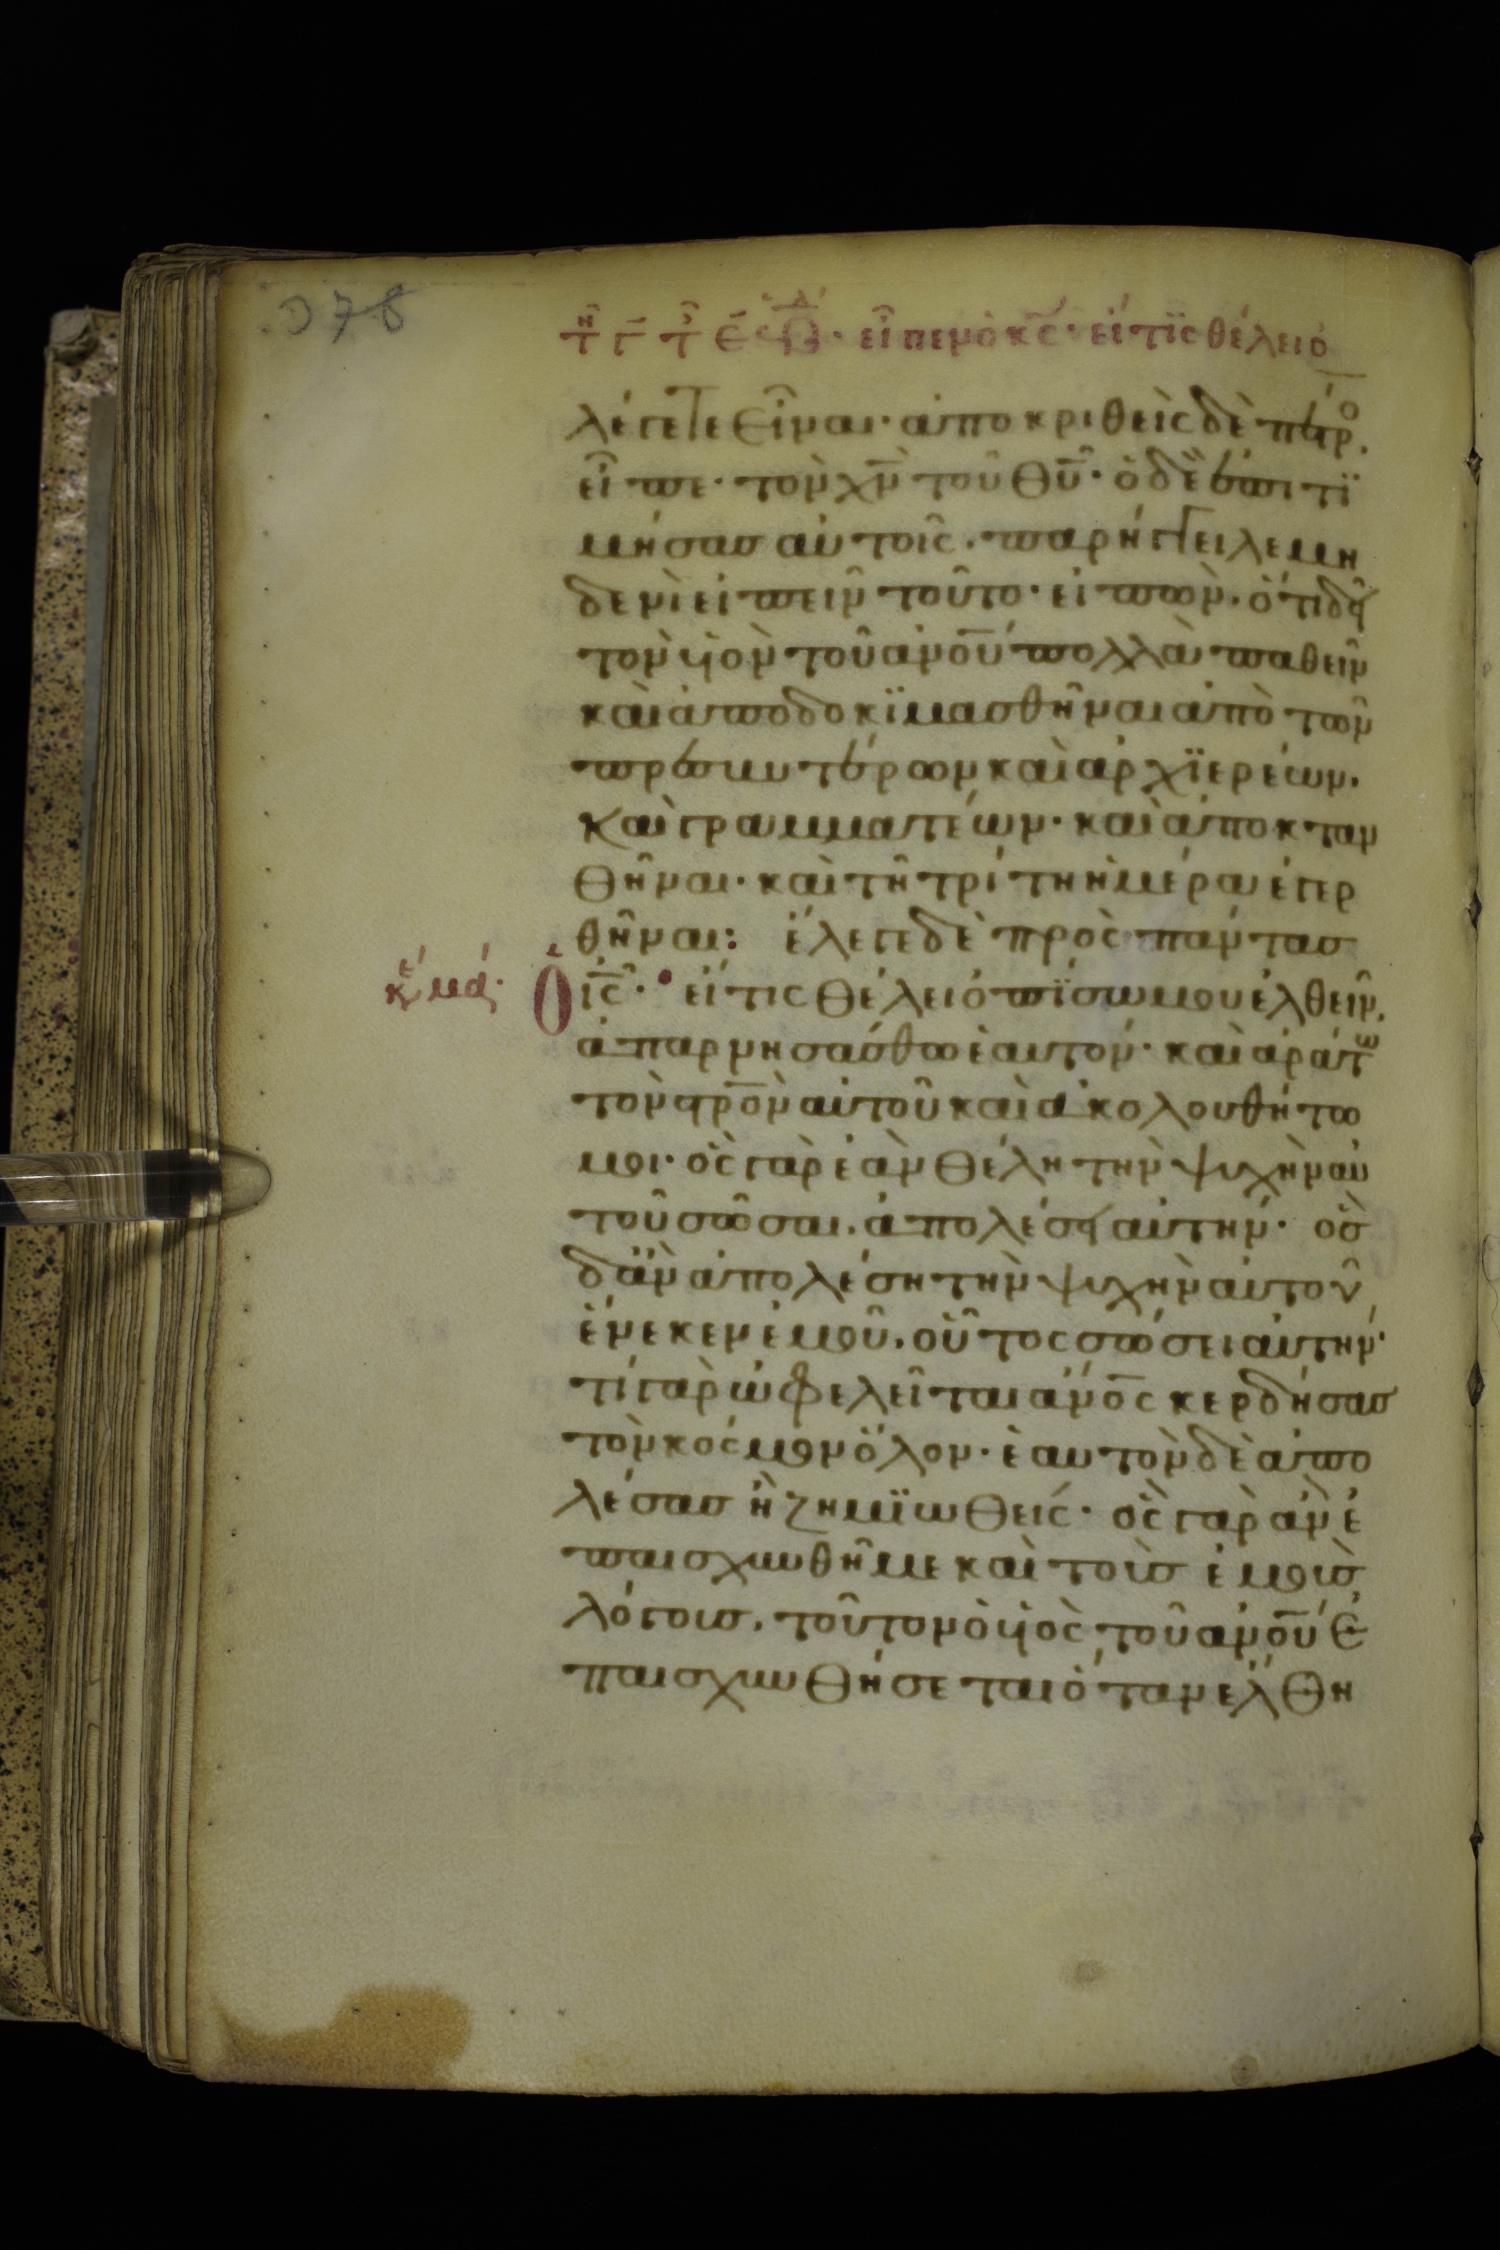 τῇ γ̄ τ ε̄ · εἶπεν ὁ κ̅ς̅· εἴ τϊς θέλει ὀ
λέγετε εἶναι· ἀποκριθεὶς δὲ πέτρο.
εἶπε· τὸν χ̅ν̅ τοῦ θ̅υ̅· ὁ δὲ ἐπιτϊ
μήσασ αὐτοῖς. παρήγγειλε μη
δενὶ εἰπεῖν τοῦτο· εἰπὼν. ὅτι δεῖ
τὸν υἱὸν τοῦ ἀν̅ο̅υ̅ πολλὰ παθεῖν
καὶ ἀποδοκϊμασθῆναι ἀπὸ τῶν
πρεσβυτέρων καὶ ἀρχϊερέων.
καὶ γραμματέων· καὶ ἀποκταν
θῆναι· καὶ τῆ τρίτη ἡμέρα ἐγερ
θῆναι: ἔλεγε δὲ πρὸς πάντασ
κε΄ μα΄.
Ὁ ι̅ς̅· εἴ τις θέλει ὀπΐσω μου ἐλθεῖν.
ἀπαρνησάσθω ἑαυτόν· καὶ ἀράτω
τὸν σ̅ρ̅ο̅ν̅ αὐτοῦ καὶ ἀκολουθήτω
μοι· ὃς γὰρ ἐὰν θέλη τὴν ψυχὴν αὐ
τοῦ σῶσαι. ἀπολέσει αὐτήν· ὃσ
δἂν ἀπολέση τὴν ψυχὴν αὐτοῦ,
ἕνεκεν ἐμοῦ. οὗτος σώσει αὐτήν·
τί γὰρ ὠφελεῖται ἄν̅ο̅ς̅ κερδήσασ
τὸν κόσμον ὅλον· ἑαυτὸν δὲ ἀπο
λέσασ ἢ ζημϊωθείς· ὃς γὰρ ἂν ἐ
παισχυνθῆ με καὶ τοὺσ ἐμοὺσ
λόγουσ. τοῦτον ὁ υἱὸς τοῦ ἀν̅ο̅υ̅ ἐ
παισχυνθήσεται ὅταν ἔλθη